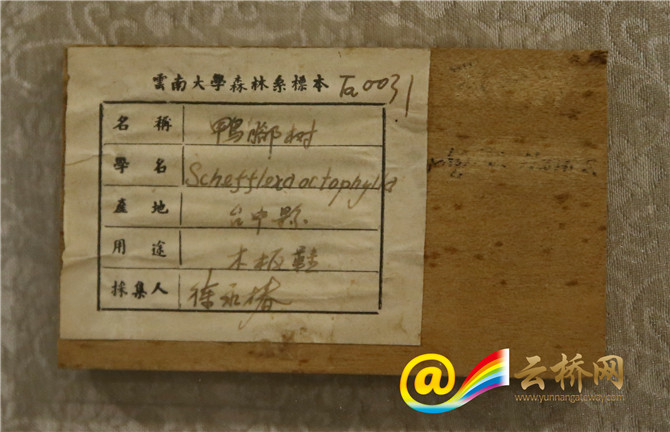 雲南大學森林系標本 Ta0031
名稱 鴨腳树
學名 Schefflera octophylla
產地 台中縣
用途 木板鞋
採集人 徐永椿
@云桥网
www.yunnangateway.com